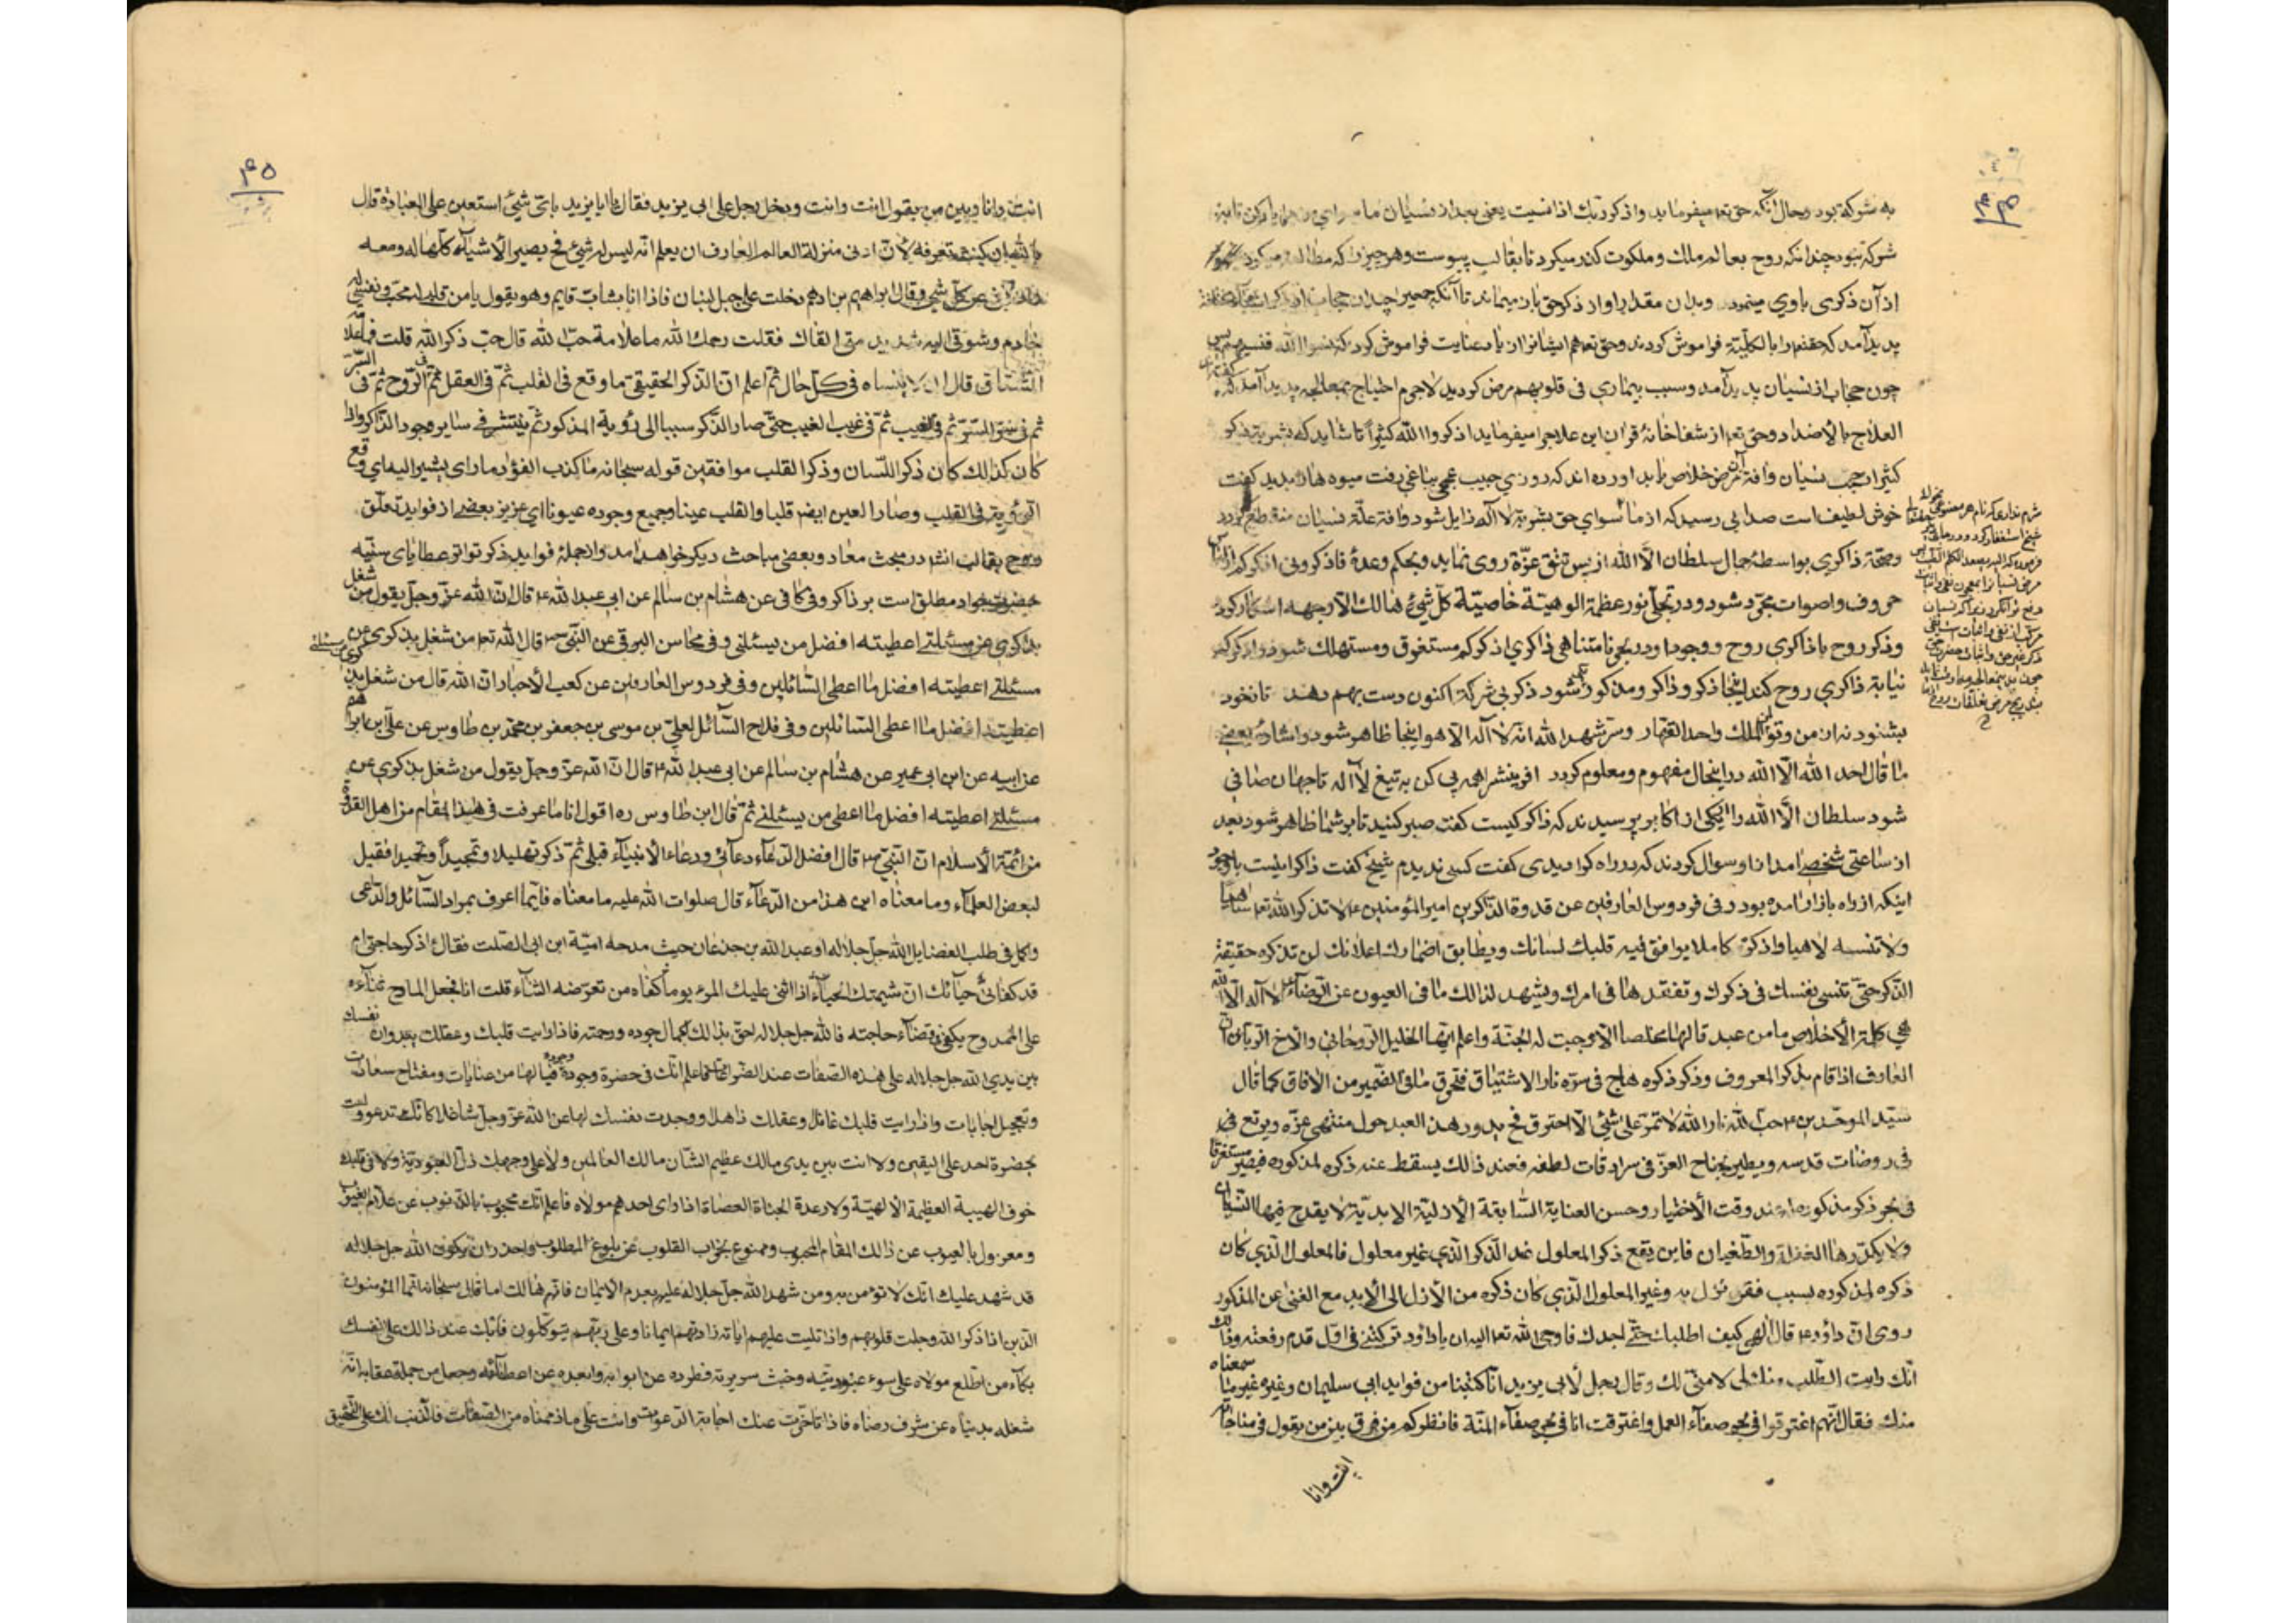 به شرکة بود وحال آنکه حق تعا میفرماید واذکر ربک اذا نسیت یعنی بعد از نسیان
شرکة نبود چندانکه روح بعالم ملک و ملکوت گذر میکرد تا بقالب پیوست و هر چیز را که مطالعه میکرد
از آن ذکری باوی میماند وبدان مقدار او از ذکر حق باز میماند تا آنکه جمعیرا چندان حجاب
پدید آمد که حقتعرا بالکلّیّة فراموش کردند وحق تعا هم ایشانرا از یاد عنایت فراموش کرد که نسوا الله فنسیهم پس
چون حجاب از نسیان پدید آمد وسبب بیماری فی قلوبهم مرض کردید لاجرم احتیاج بمعالجه پدید آمد که
العلاج بالاضداد وحق تعا از شفاخانهٔ قرآن این علاج را میفرماید اذکروا الله کثیراً تا شاید که بشربة ذکر
کثیر از حجب نسیان وآفة آن مرض خلاص یابد آورده اند که روزی حبیب عجمی بباغی رفت میوه ها را بدید گفت
خوش لطیف است صدایی رسید که از ما سوای حق بشربة لا اله زایل شود وآفة علّة نسیان منقطع گردد
وصحّة ذاکری بواسطهٔ جمال سلطان الّا الله از پس تتق عزّة روی نماید وبحکم وعدهٔ فاذکرونی اذکرکم از لباس
حروف واصوات مجرّد شود ودر تجلّی نور عظمة الوهیّة خاصیّة کلّ شیٔ هالک الّا وجهه آشکار گردد
وذکر روح با ذاکری روح ووجود او در بحر نامتناهی ذاکری اذکرکم مستغرق ومستهلک شود واذکرکم
نیابة ذاکری روح کند اینجا ذکر وذاکر ومذکور یکی شود ذکر بی شرکة اکنون دست بهم دهد تا نه خود
بشنود نه از من وتو لمن الملک واحد القهّار وسرّ شهد الله انّه لا اله الّا هو اینجا ظاهر شود واشارهٔ بعضی
ما قال احد الله الّا الله در اینحال مفهوم ومعلوم گردد آفرینش را همه پی کن به تیغ لا اله تا جهان صافی
شود سلطان الّا الله را یکی از اکابر پرسیدند که ذاکر کیست گفت صبر کنید تا بر شما ظاهر شود بعد
از ساعتی شخصی آمد از او سؤال کردند که در راه کرا دیدی گفت کسی ندیدم شیخ گفت ذاکر اینست باوجود
اینکه از راه بازار آمده بود وفی فردوس العارفین عن قدوة الذّاکرین امیر المؤمنین ع لا تذکر الله تعا ساهیا
ولا تنسه لاهیا واذکره کاملا یوافق فیه قلبک لسانک ویطابق اضمارک اعلانک لن تذکره حقیقة
الذّکر حتّی تنسی نفسک فی ذکرک وتفقدها فی امرک ویشهد لذلک ما فی العیون عن الرّضا ع لا اله الّا الله
هی کلمة الأخلاص ما من عبد قالها مخلصا الّا وجبت له الجنّة واعلم ایّها الخلیل الرّوحانی والأخ الرّبّانی انّ
العارف اذا قام بذکر المعروف وذکر ذکره هاج فی سرّه نار الاشتیاق فتحرق ما فی الضّمیر من الآفاق کما قال
سیّد الموحّدین ع حبّ الله نار الله لا تمرّ علی شیٔ الّا احترق فح یدور هذا العبد حول منتهی عزّه ویرتع فی
فی روضات قدسه ویطیر بجناح العزّ فی سرادقات لطفه فعند ذلک یسقط عنه ذکره لمذکوره فیصیر مستغرقا
فی بحر ذکر مذکوره له عند وقت الأختیار وحسن العنایة السّابقة الأزلیّة الابدیّة لا یقدح فیها النّسیان
ولا یکدّرها الغفلة والطّغیان فاین یقع ذکر المعلول عند الذّکر الّذی غیر معلول فالمعلول الّذی کان
ذکره لمذکوره بسبب فقر نزل به وغیر المعلول الّذی کان ذکره من الأزل الی الأبد مع الغنی عن المذکور
روی انّ داود ع قال الهی کیف اطلبک حتّی اجدک فاوحی الله تعا الیه ان یا داود ترکتنی فی اوّل قدم رفعته وذلک
انّک رایت الطّلب منک لی لا منّی لک وقال رجل لأبی یزید انّا کتبنا من فوائد ابی سلیمان وغیره غیر ما سمعناه
منک فقال انّهم اغترقوا فی بحر صفاء العمل واغترقت انا فی بحر صفاء المنّة فانظر کم من فرق بین من یقول فی مناجاته
انت وانا
۴۵
انت وانا وبین من یقول انت وانت ودخل رجل علی ابی یزید فقال یا ابا یزید بایّ شیٔ استعین علی العبادة قال
بالله ان کنت تعرفه لأنّ ادنی منزلة العالم العارف ان یعلم انّه لیس له شیٔ فح یصیر الأشیاء کلّها له ومعه
عن کلّ شیٔ وقال ابراهیم بن ادهم دخلت علی جبل لبنان فاذا انا بشابّ قایم وهو یقول یا من قلبی له محبّ ونفسی له
خادم وشوقی الیه شدید متی القاک فقلت رحمک الله ما علامة حبّ الله قال حبّ ذکر الله قلت فما علامة
المشتاق قال ان لا ینساه فی کلّ حال ثمّ اعلم انّ الذّکر الحقیقی ما وقع فی القلب ثمّ فی العقل ثمّ فی الرّوح ثمّ فی السّرّ
ثمّ فی سرّ السّرّ ثمّ فی الغیب ثمّ فی غیب الغیب حتّی صار الذّکر سببا الی رؤیة المذکور ثمّ ینتشر فی سایر وجود الذّاکر واذا
کان کذلک کان ذکر اللّسان وذکر القلب موافقین قوله سبحانه ما کذب الفؤاد ما رای یشیر الیه ای وقع
الرّؤیة فی القلب وصار العین ایضا قلبا والقلب عینا وجمیع وجوده عیونا ای عزیز بعضی از فواید تعلّق
روح بقالب انشا در مبحث معاد وبعضی مباحث دیگر خواهد آمد واز جملهٔ فواید ذکر تواتر عطایای سنیّه
حضرت جواد مطلق است بر ذاکر وفی کافی عن هشام بن سالم عن ابی عبد الله ع قال انّ الله عزّ وجلّ یقول من شغل
بذکری عن مسئلتی اعطیته افضل من یسئلنی وفی محاسن البرقی عن النّبیّ ص قال الله تعا من شغل بذکری عن
مسئلتی اعطیته افضل ما اعطی السّائلین وفی فردوس العارفین عن کعب الأحبار انّ الله قال من شغل بذکری عن مسئلتی
اعطیته افضل ما اعطی السّائلین وفی فلاح السّائل لعلیّ بن موسی بن جعفر بن محمّد بن طاوس عن علی بن ابراهیم
عن ابیه عن ابن ابی عمیر عن هشام بن سالم عن ابی عبد الله ع قال انّ الله عزّ وجلّ یقول من شغل بذکری عن
مسئلتی اعطیته افضل ما اعطی من یسئلنی ثمّ قال ابن طاوس ره اقول انا ما عرفت فی هذا المقام من اهل القدوة
من ائمّة الأسلام انّ النّبیّ ص قال افضل الدّعاء دعائی ودعاء الأنبیاء قبلی ثمّ ذکر تهلیلا وتمجیداً وتحمیدا فقیل
لبعض العلماء وما معناه این هذا من الدّعاء قال صلوات الله علیه ما معناه فایّما اعرف بمراد السّائل والدّاعی
واکمل فی طلب الفضایل الله جلّ جلاله او عبد الله بن جدعان حیث مدحه امیّة ابن ابی الصّلت فقال ءاذکر حاجتی ام
قد کفانی حیائک انّ شیمتک الحیاء اذا اثنی علیک المرء یوما کفاه من تعرّضه الثّناء قلت انا فجعل المادح ثناءه
علی الممدوح یکفی فی قضاء حاجته فالله جلّ جلاله احقّ بذلک لکمال جوده ورحمته فاذا رایت قلبک وعقلک ونفسک
بین یدی الله جلّ جلاله علی هذه الصّفات عند الضّراعات فاعلم انّک فی حضرة وجوده وجوده فیا لها من عنایات ومفتاح سعادات
وتعجیل اجابات واذا رایت قلبک غافلا وعقلک ذاهلا ووجدت نفسک لها عن الله عزّ وجلّ شاغلا کانّک تدعو ولست
بحضرة احد علی الیقین ولا انت بین یدی مالک عظیم الشّأن مالک العالمین ولا علی وجهک ذلّ العبودیّة ولا فی قلبک
خوف الهیبة العظیمة الألهیّة ولا رعدة الجناة العصاة اذا رای احدهم مولاه فاعلم انّک محجوب بالذّنوب عن علّام الغیوب
ومعزول بالعیوب عن ذلک المقام المحبوب وممنوع بخراب القلوب عن بلوغ المطلوب واحذر ان یکون الله جلّ جلاله
قد شهد علیک انّک لا تؤمن به ومن شهد الله جلّ جلاله علیه بعدم الایمان فانّه هالک اما قال سبحانه انّما المؤمنون
الّذین اذا ذکر الله وجلت قلوبهم واذا تلیت علیهم ایاته زادتهم ایمانا وعلی ربّهم یتوکّلون فابک عند ذلک علی نفسک
بکاء من اطّلع مولاه علی سوء عبودیّته وخبث سریرته فطرده عن ابوابه وابعده عن اعطائه وجعل من جملة عقابه انّه
شغله بدنیاه عن شرف رضاه فاذا تاخّرت عنک اجابة الدّعوات وانت علی ما ذممناه من الصّفات فالذّنب لک علی التّحقیق